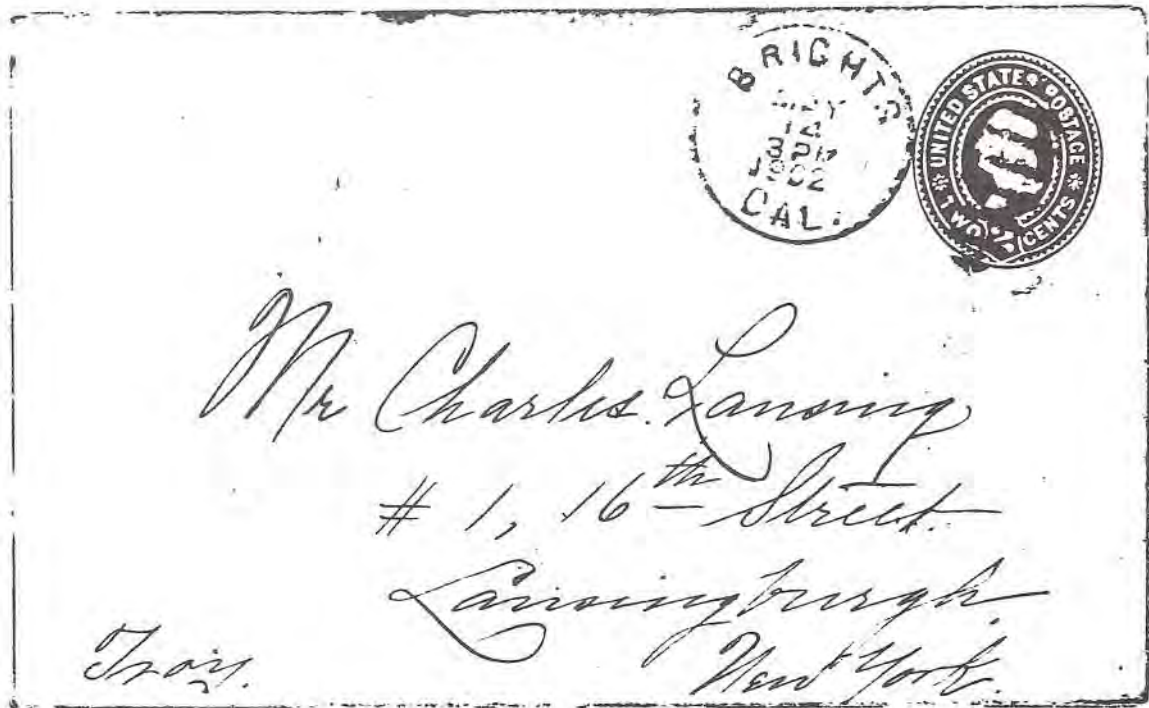 BRIGHTS
14
1902
CAL.
UNITED STATES POSTAGE
TWO 2 CENTS
Mr Charles. Lansing
# 1, 16th Street.
Lansingburgh.
Troy.
New York.